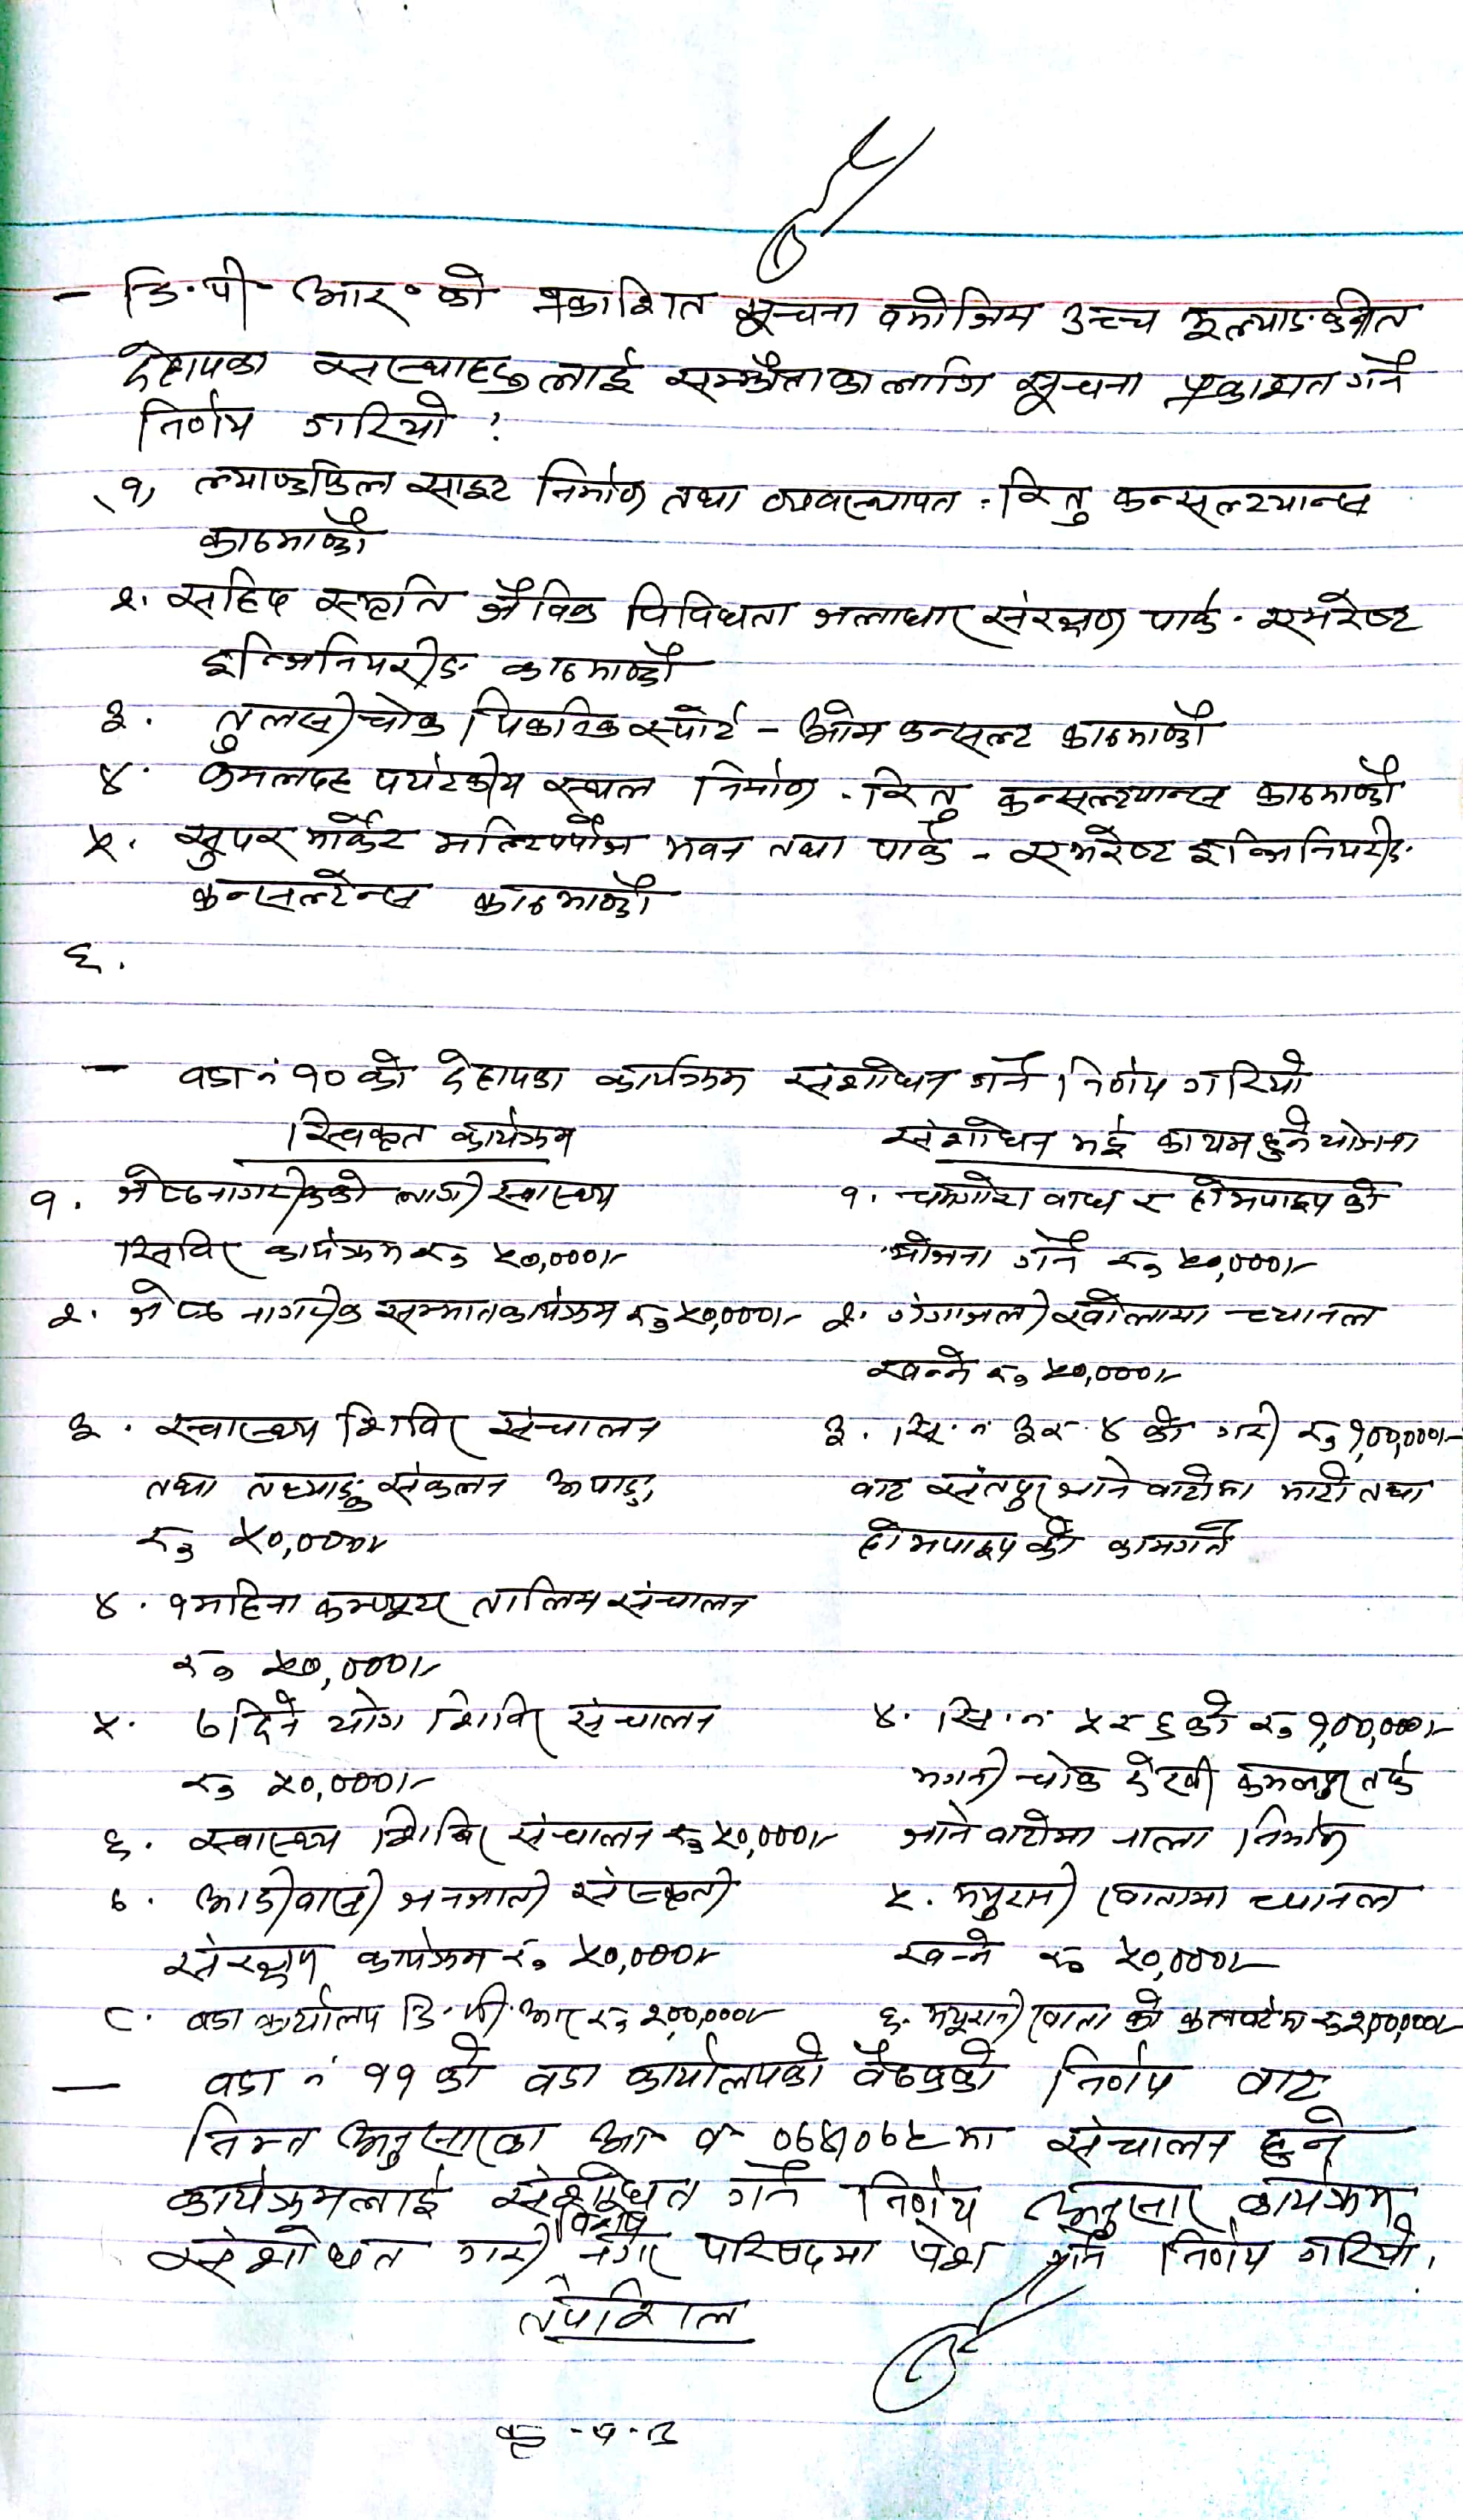 - डि.पी. आर. को प्रकाशित सूचना वमोजिम उच्च मूल्याङकनीत
देहायका संस्थाहरुलाई सम्झौताका लागि सूचना प्रकाशत गर्ने
निर्णय गरियो :
१) ल्याण्डफिल साइट निर्माण तथा व्यवस्थापन : रितु कन्सल्ट्यान्स
काठमाण्डौ
२. सहिद स्मृति जैविक विविधता जलाधार संरक्षण पार्क - एभरेष्ट
इन्जिनियरीङ काठमाण्डौ
३. तुलसी चोक पिकनिक स्पोर्ट - ओम कन्सल्ट काठमाण्डौ
४. कमलदह पर्यटकीय स्थल निर्माण - रितु कन्सल्ट्यान्स काठमाण्डौ
५. सुपर मार्केट मल्टिपर्पोज भवन तथा पार्क - एभरेष्ट इन्जिनियरीङ
कन्सल्टेन्स काठमाण्डौ
६.
- वडा नं १० को देहायका कार्यक्रम संशोधन गर्ने निर्णय गरियो
स्विकृत कार्यक्रम
संशोधन भई कायम हुने योजना
१. जेष्ठनागरीकको लागी स्वास्थ्य
१. वाध र होमपाइप को
सिविर कार्यक्रम रु ५०,०००।-
योजना गर्ने रु ५०,०००।-
२. जेष्ठ नागरीक सम्मान कार्यक्रम रु ५०,०००।-
२. गंगाजली खोलामा च्यानल
खन्ने रु ५०,०००।-
३. स्वास्थ्य शिविर संचालन
३. सि.नं ३ र ४ को गरी रु १,००,०००।-
तथा तथ्याङ्क संकलन अपाङ्ग
वाट संतपुर जाने वाटोमा माटो तथा
रु ५०,०००।-
होमपाइप को काम गर्ने
४. १ महिना कम्प्युटर तालिम संचालन
रु ५०,०००।-
५. ७ दिने योग शिविर संचालन
४. सि.नं ५ र ६ को रु १,००,०००।-
रु ५०,०००।-
चोक देखी कमलपुर तर्फ
६. स्वास्थ्य शिविर संचालन रु ५०,०००।-
जाने वाटोमा नाला निर्माण
७. आदीवासी जनजाती संस्कृती
५. खातामा च्यानल
संरक्षण कार्यक्रम रु ५०,०००।-
खन्ने रु ५०,०००।-
८. वडा कार्यालय डि.पी.आर रु २,००,०००।-
६. खाता को कल्भर्टमा रु २,००,०००।-
- वडा नं ११ को वडा कार्यालयको वैठकको निर्णय वाट
निम्न अनुसारका आ व संचालन हुने
कार्यक्रमलाई संशोधित गर्ने निर्णय अनुसार कार्यक्रम
विशेष
संशोधन गरी नगर परिषदमा पेश गर्ने निर्णय गरियो ।
तपशिल